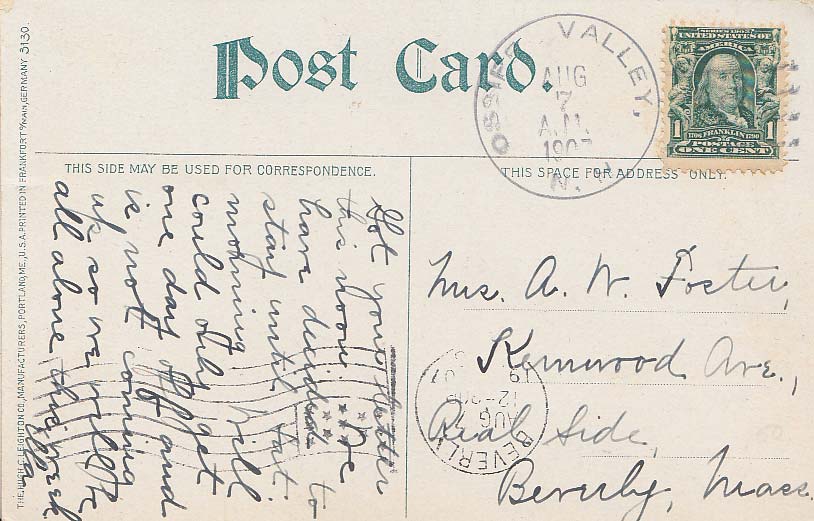 Post Card.
THIS SIDE MAY BE USED FOR CORRESPONDENCE.
THIS SPACE FOR ADDRESS ONLY.
THE HUGH C. LEIGHTON CO., MANUFACTURERS, PORTLAND, ME., U.S.A. PRINTED IN FRANKFORT o/MAIN, GERMANY 3130.
OSSIPEE VALLEY,
AUG
7
A.M.
1907
N.H.
SERIES 1902
UNITED STATES OF
AMERICA
1706 FRANKLIN 1790
POSTAGE
1 1
ONE CENT
Got your letter
this noon. We
have decided to
start until Sat.
morning. Will
could only get
one day off and
is not coming
up so we will be
all alone this week.
Mrs. A. W. Foster,
Kernwood Ave.,
Real Side,
Beverly, Mass.
BEVERLY
AUG 7
12
07